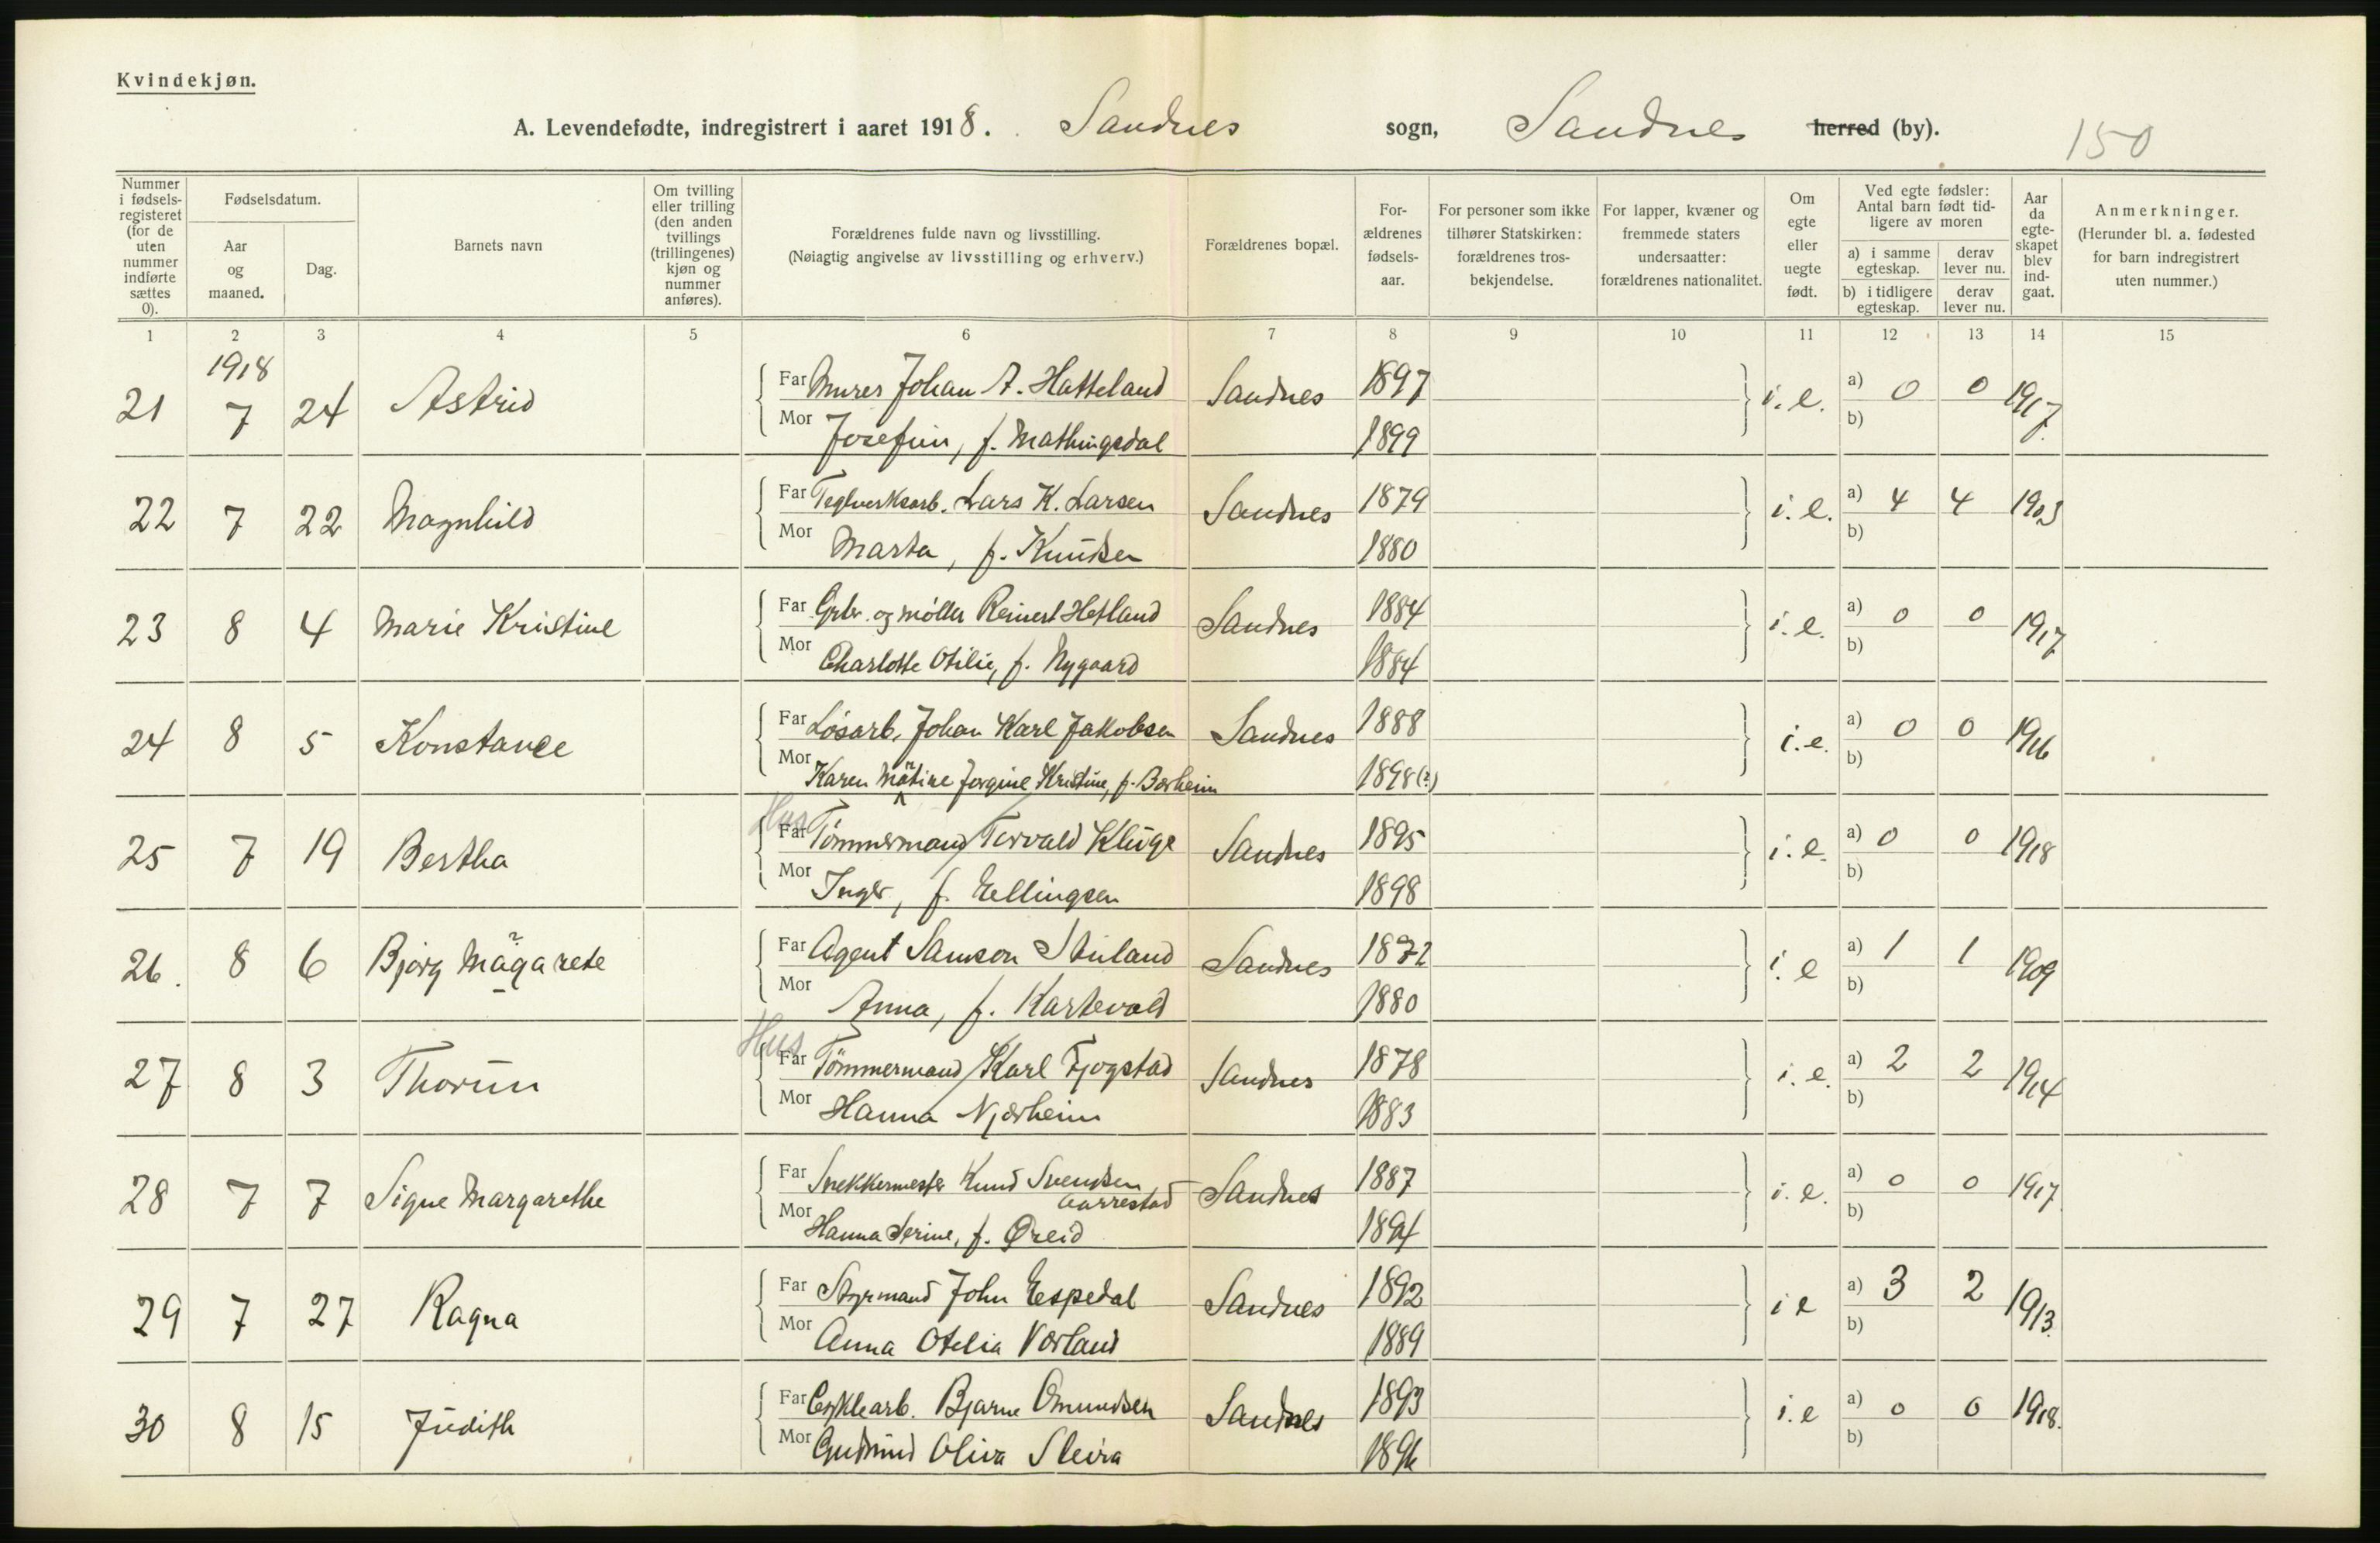 Kvindekjøn.
A. Levendefødte, indregistrert i aaret 1918. Sandnes sogn, Sandnes herred (by).
150
Nummer i fødselsregisteret (for de uten nummer indførte sættes 0).
Fødselsdatum.
Aar og maaned.
Dag.
Barnets navn
Om tvilling eller trilling (den anden tvillings (trillingenes) kjøn og nummer anføres).
Forældrenes fulde navn og livsstilling.
(Nøiagtig angivelse av livsstilling og erhverv.)
Forældrenes bopæl.
Forældrenes fødselsaar.
For personer som ikke tilhører Statskirken: forældrenes trosbekjendelse.
For lapper, kvæner og fremmede staters undersaatter: forældrenes nationalitet.
Om egte eller uegte født.
Ved egte fødsler: Antal barn født tidligere av moren
a) i samme egteskap.
derav lever nu.
b) i tidligere egteskap.
derav lever nu.
Aar da egteskapet blev indgaat.
Anmerkninger.
(Herunder bl. a. fødested for barn indregistrert uten nummer.)
1 2 3 4 5 6 7 8 9 10 11 12 13 14 15
1918
21 7 24 Astrid Far Murer Johan A. Hatteland Sandnes 1897 i. e. a) 0 0 1917.
Mor Josefin, f. Mathingsdal 1899 b)
22 7 22 Magnhild Far Teglverksarb. Lars K. Larsen Sandnes 1879 i. e. a) 4 4 1903
Mor Marta, f. Knudsen 1880 b)
23 8 4 Marie Kristine Far Grbr. og møller Reinert Hetland Sandnes 1884 i. e. a) 0 0 1917
Mor Charlotte Otilie, f. Nygaard 1884 b)
24 8 5 Konstance Far Løsarb. Johan Karl Jakobsen Sandnes 1888 i. e. a) 0 0 1916
Mor Karen Martine Jorgine Kristine, f. Borheim 1898(?) b)
Hus
25 7 19 Bertha Far Tømmermand Torvald Kluge Sandnes 1895 i. e. a) 0 0 1918
Mor Inger, f. Ellingsen 1898 b)
26. 8 6 Bjørg Magarete Far Agent Samson Stuland Sandnes 1872 i. e a) 1 1 1909
Mor Anna, f. Kartevold 1880 b)
Hus
27 8 3 Thorun Far Tömmermand Karl Fjogstad Sandnes 1878 i. e. a) 2 2 1914
Mor Hanna Njærheim 1883 b)
28 7 7 Signe Margarethe Far Snekkermester Knud Svendsen Aarrestad Sandnes 1887 i. e. a) 0 0 1917
Mor Hanna Serine, f. Øreid 1894 b)
29 7 27 Ragna Far Styrmand John Espedal Sandnes 1892 i e a) 3 2 1913.
Mor Anna Otelia Vorland 1889 b)
30 8 15 Judith Far Cyklearb. Bjarne Omundsen Sandnes 1893 i. e a) 0 0 1918.
Mor Gudrund Oliva Sleira 1896 b)